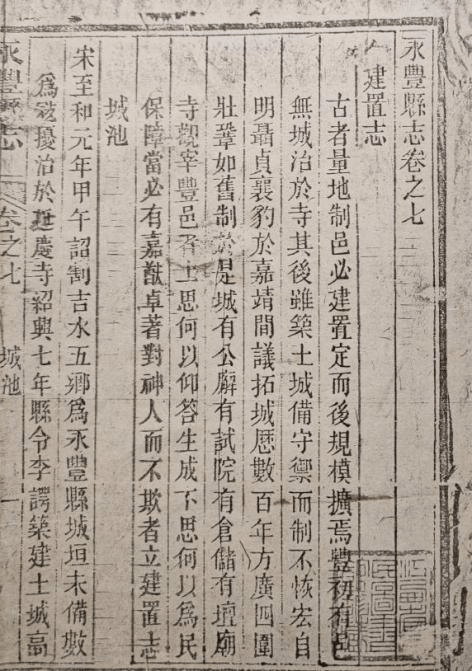 永豐縣志卷之七
建置志
古者量地制邑必建置定而後規模擴焉豐初有邑
無城治於寺其後雖築土城備守禦而制不恢宏自
明聶貞襄豹於嘉靖間議拓城歷數百年方廣四圍
壯鞏如舊制於是城有公廨有試院有倉儲有壇廟
寺觀宰豐邑者上思何以仰答生成下思何以為民
保障當必有嘉猷卓著對神人而不欺者立建置志
城池
宋至和元年甲午詔割吉水五鄉爲永豐縣城垣未備數
爲寇擾治於延慶寺紹興七年縣令李諤築建土城高
永豐縣志
卷之七
城池
一